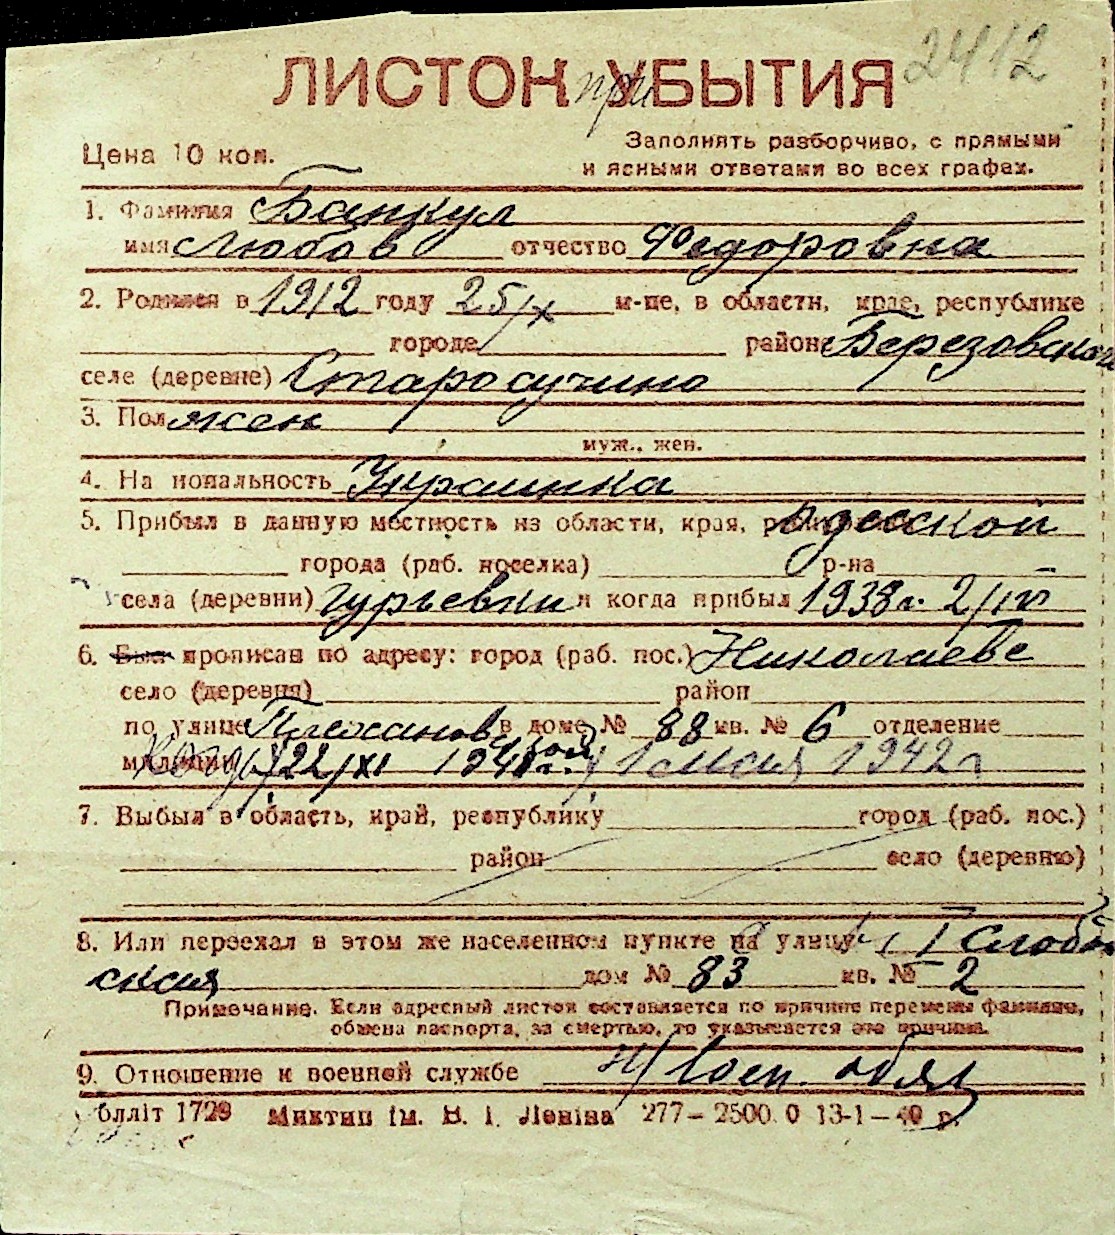 2412
ЛИСТОК при УБЫТИЯ
Цена 10 коп.
Заполнять разборчиво, с прямыми
и ясными ответами во всех графах.
1. Фамилия Банкул
имя Любов отчество Федоровна
2. Родился в 1912 году 25/X м-це, в области, крае, республике
городе районе Березовском
селе (деревне) Старосучино
3. Пол жен
муж., жен.
4. Национальность Украинка
5. Прибыл в данную местность из области, края, Одесской
города (раб. поселка) р-на
села (деревни) Гурьевки и когда прибыл 1938 г. 2/IV
6. Был прописан по адресу: город (раб. пос.) Николаеве
село (деревня) район
по улице Плеханов в доме № 88 кв. № 6 отделение
милиции 22/XI 1941 г. 1 мая 1942 г
7. Выбыл в область, край, республику город (раб. пос.)
район село (деревню)
8. Или переехал в этом же населенном пункте на улицу I Слобод
ская дом № 83 кв. № 2
Примечание. Если адресный листок составляется по причине перемены фамилии,
обмена паспорта, за смертью, то указывается эта причина.
9. Отношение к военной службе н/воен. обяз
блліт 1729 Миктип ім. В. І. Леніна 277–2500.0 13-1–40 р.